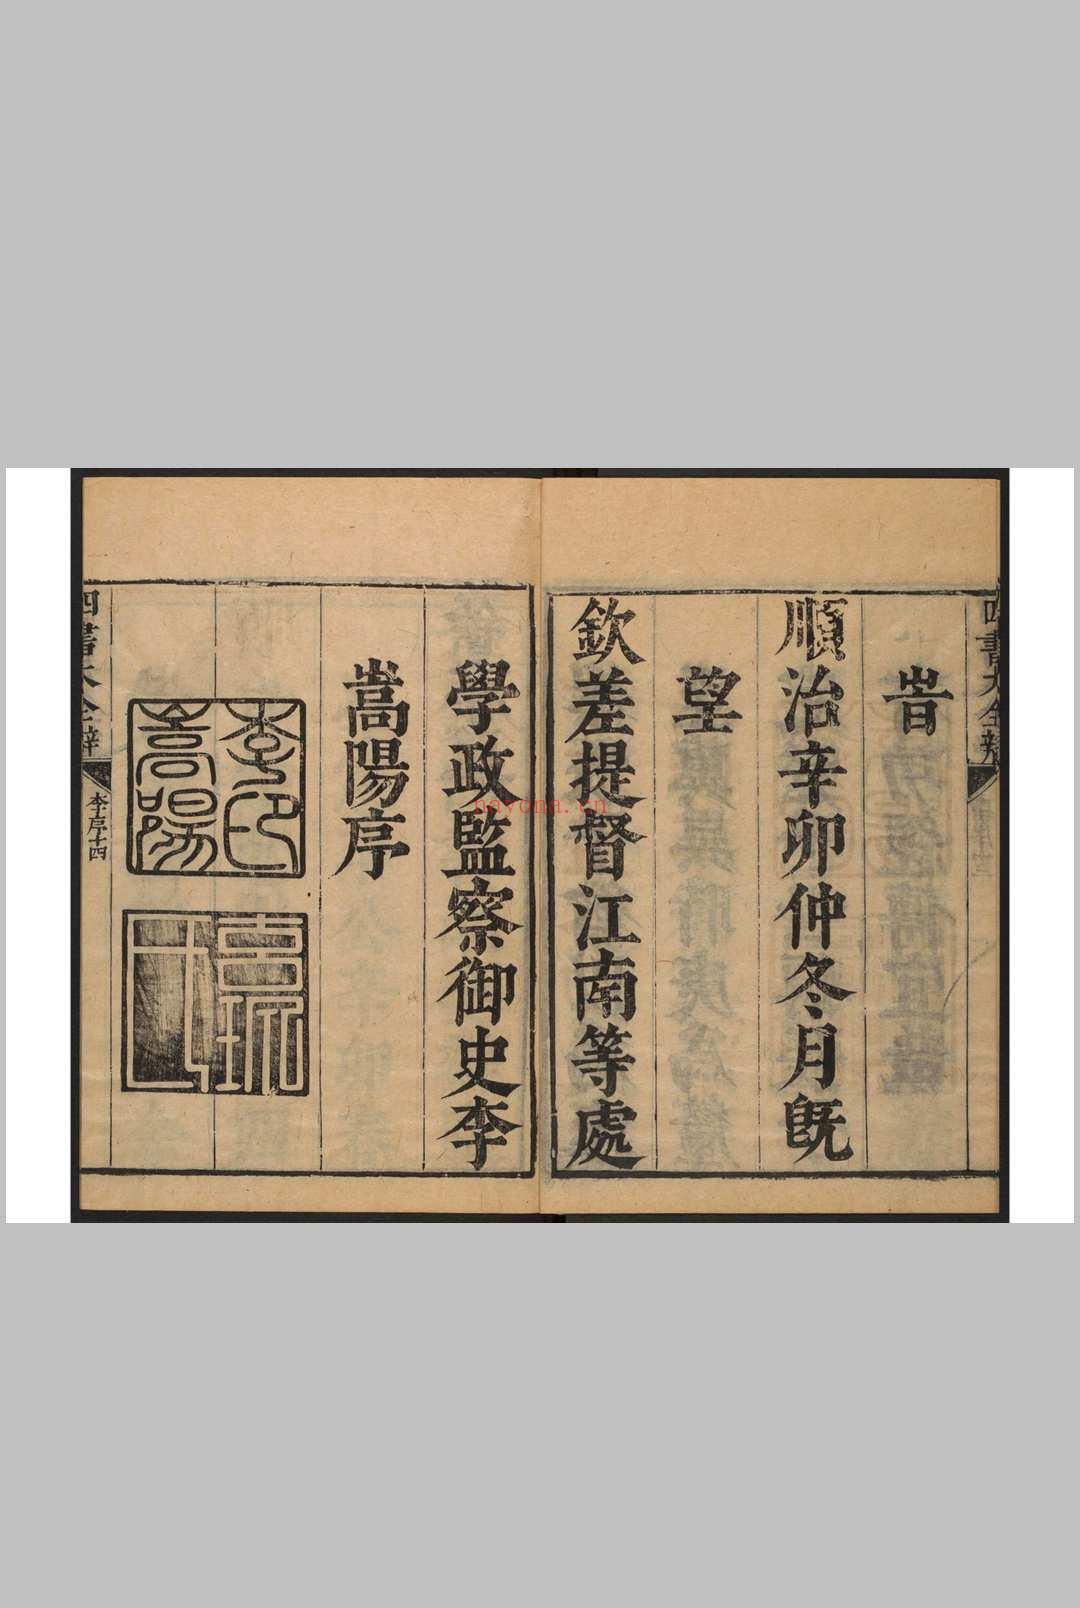 旹
順治辛卯仲冬月旣
望
欽差提督江南等處
學政監察御史李
嵩陽序
李印嵩陽
四書大全辯
李序十四
四書大全辯
nayona.cn